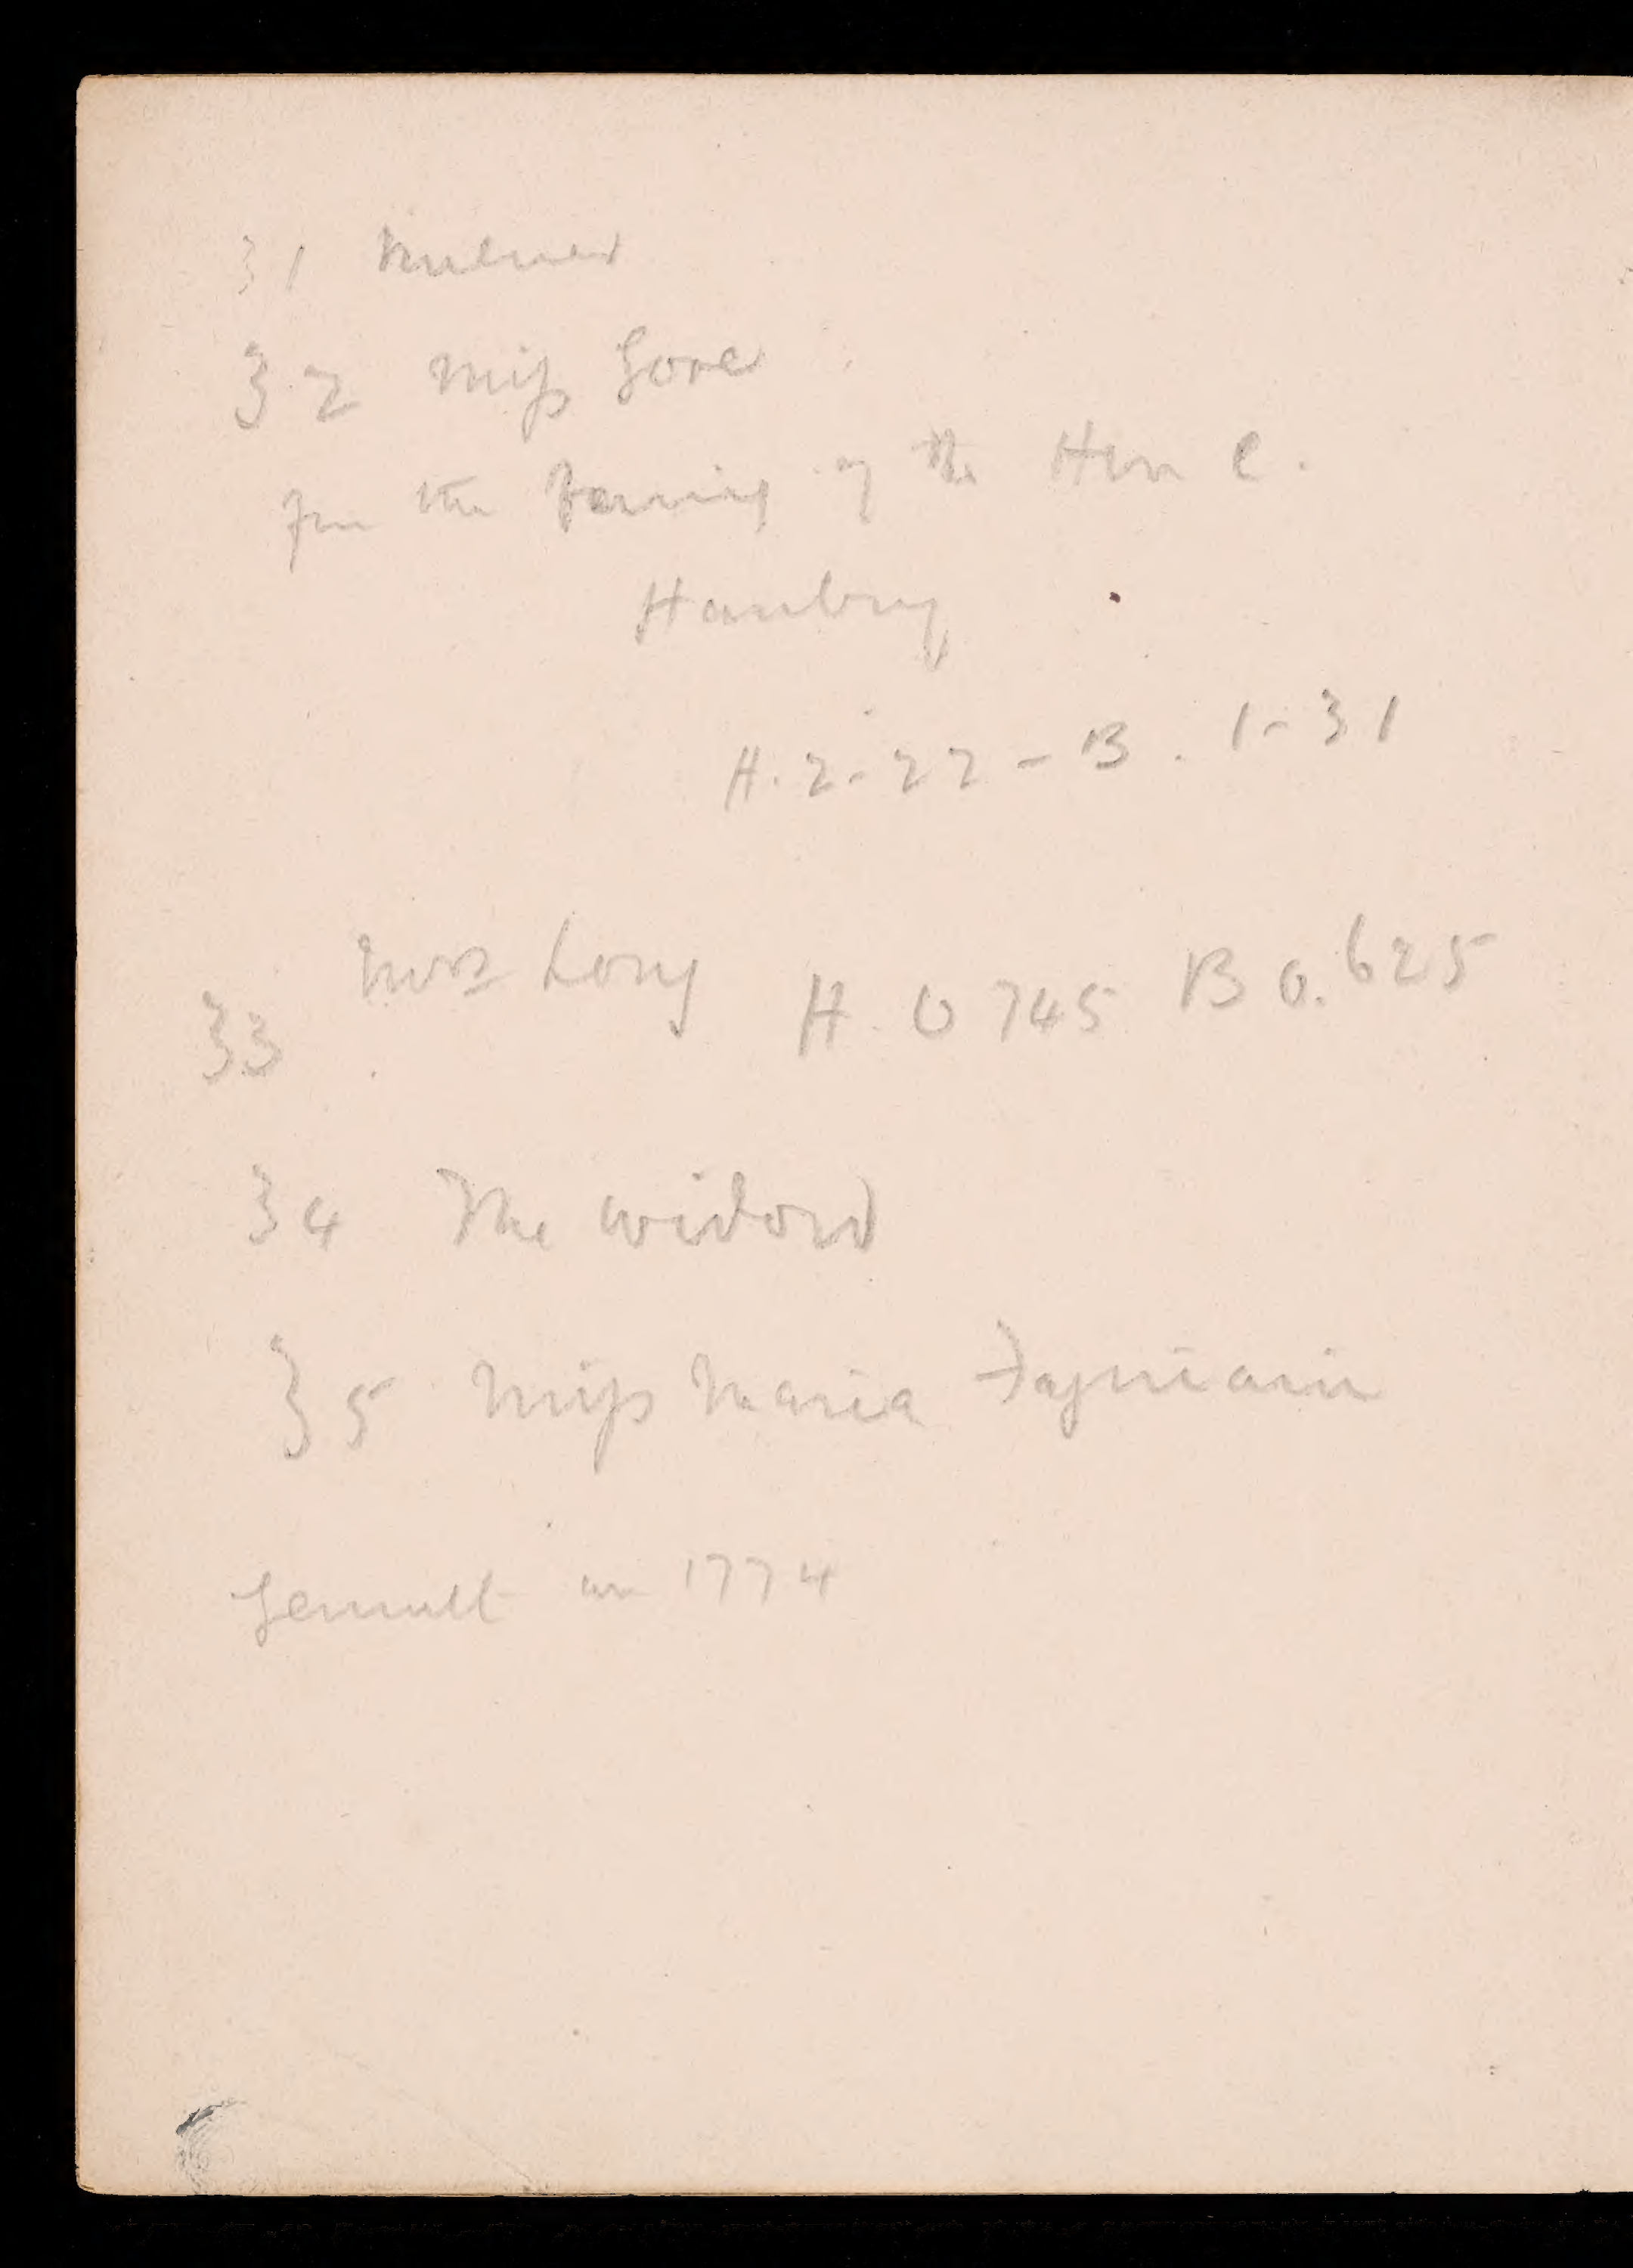 31
32 Miss Gore
for the Family of the Hon C.
Hanbury
H. 2.22 - B. 1-31
33 Mrs Long H. 0 745 B 0.625
34 The widow
35 Miss Maria
in 1774